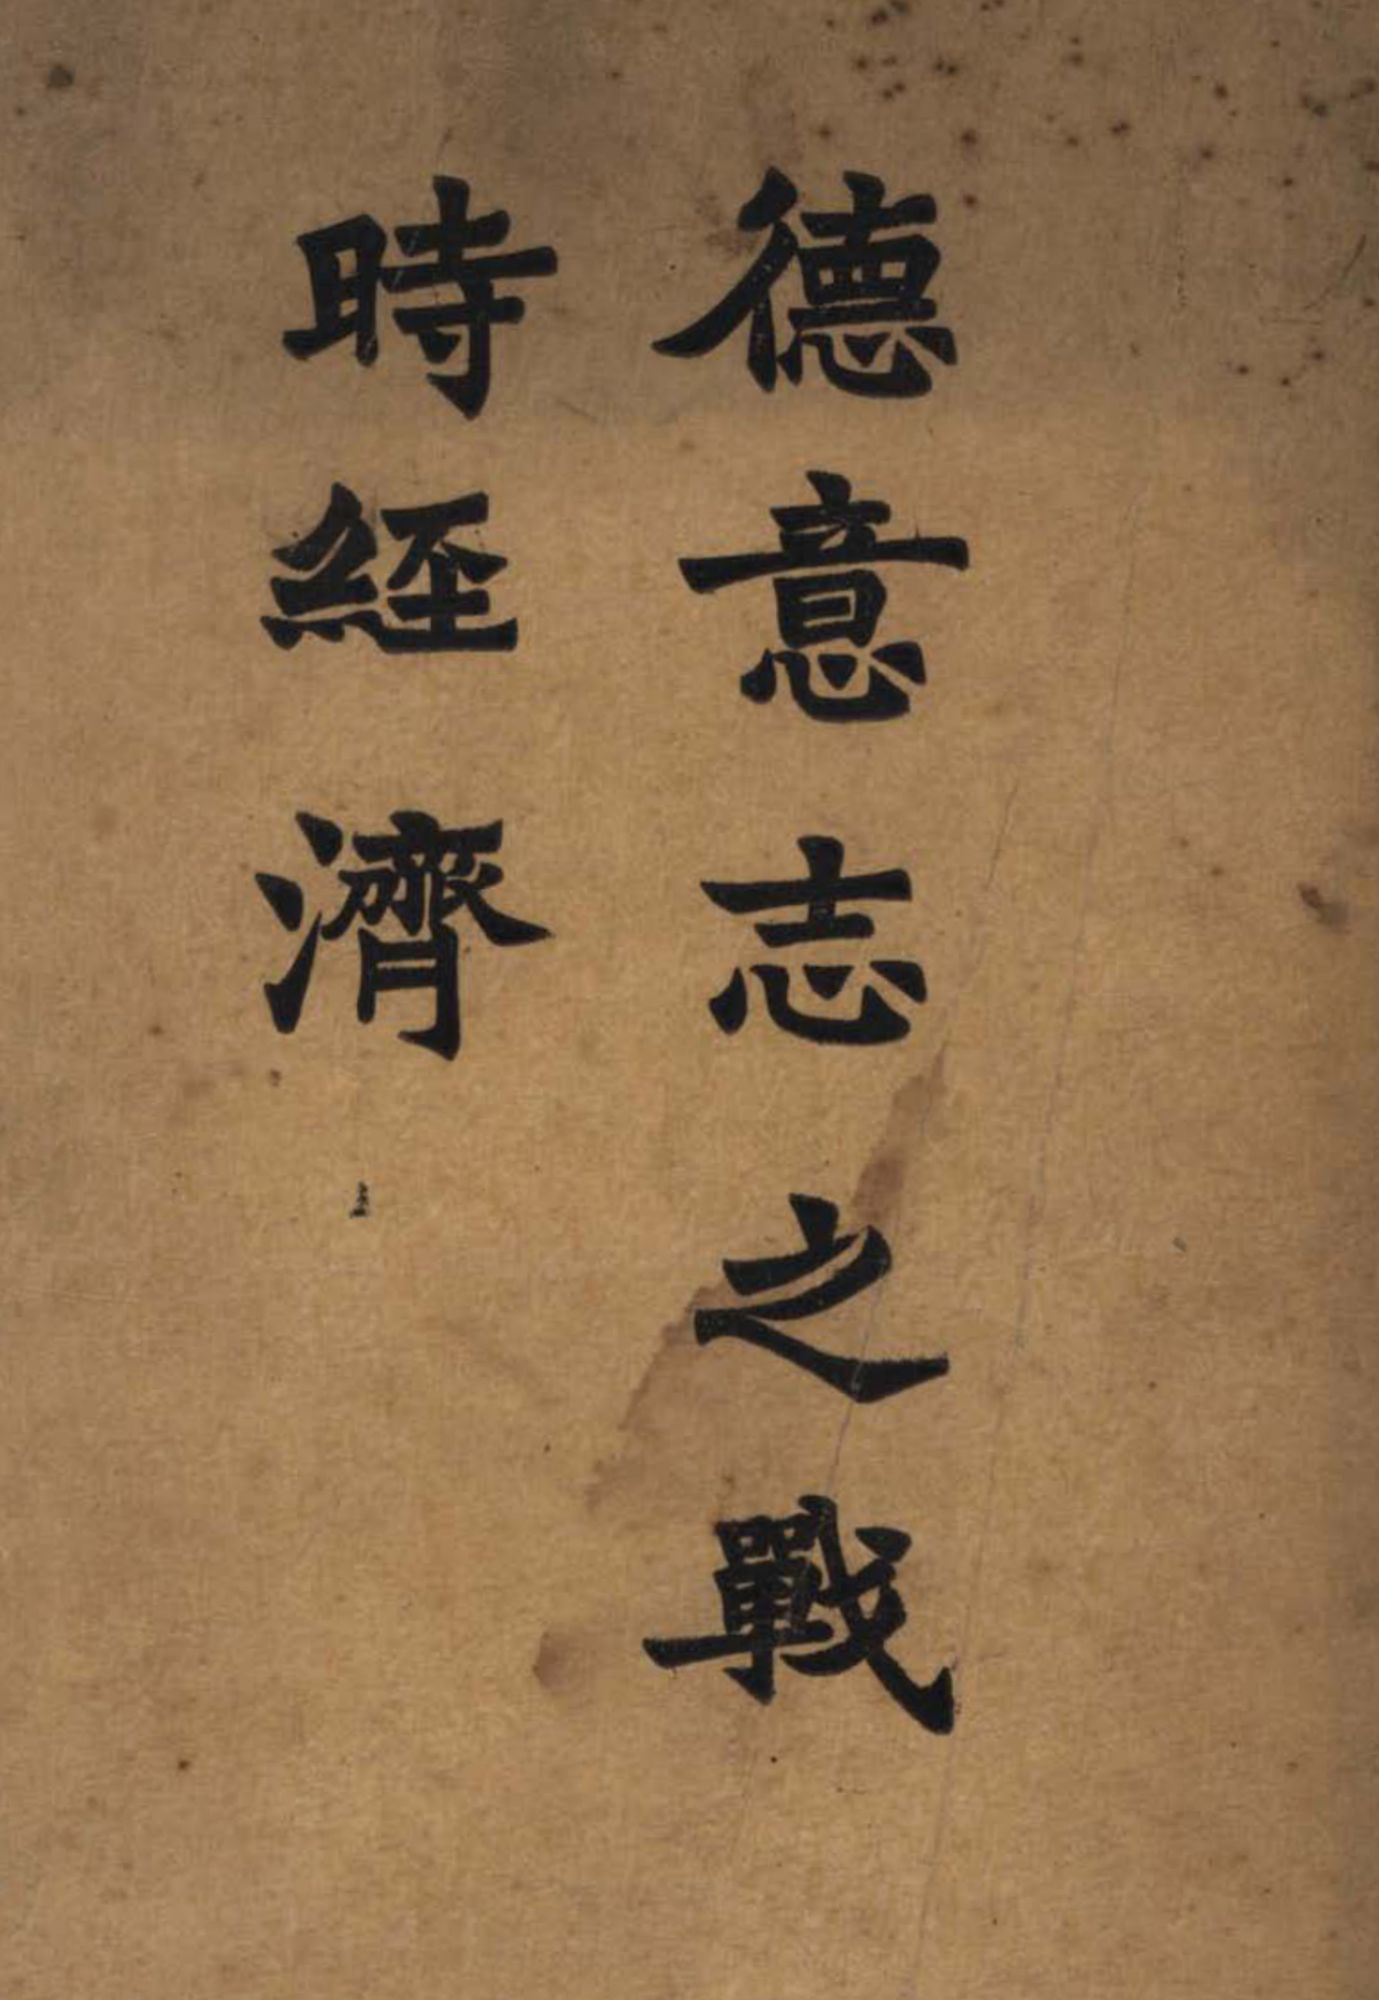 德意志之戰
時經濟